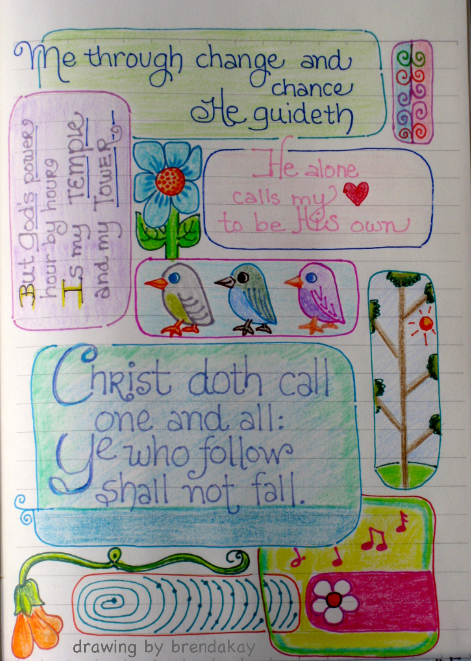 Me through change and
chance
He guideth
But God's power
hour by hour
Is my TEMPLE
and my TOWER
He alone
calls my
to be His own
Christ doth call
one and all:
Ye who follow
shall not fall.
drawing by brendakay